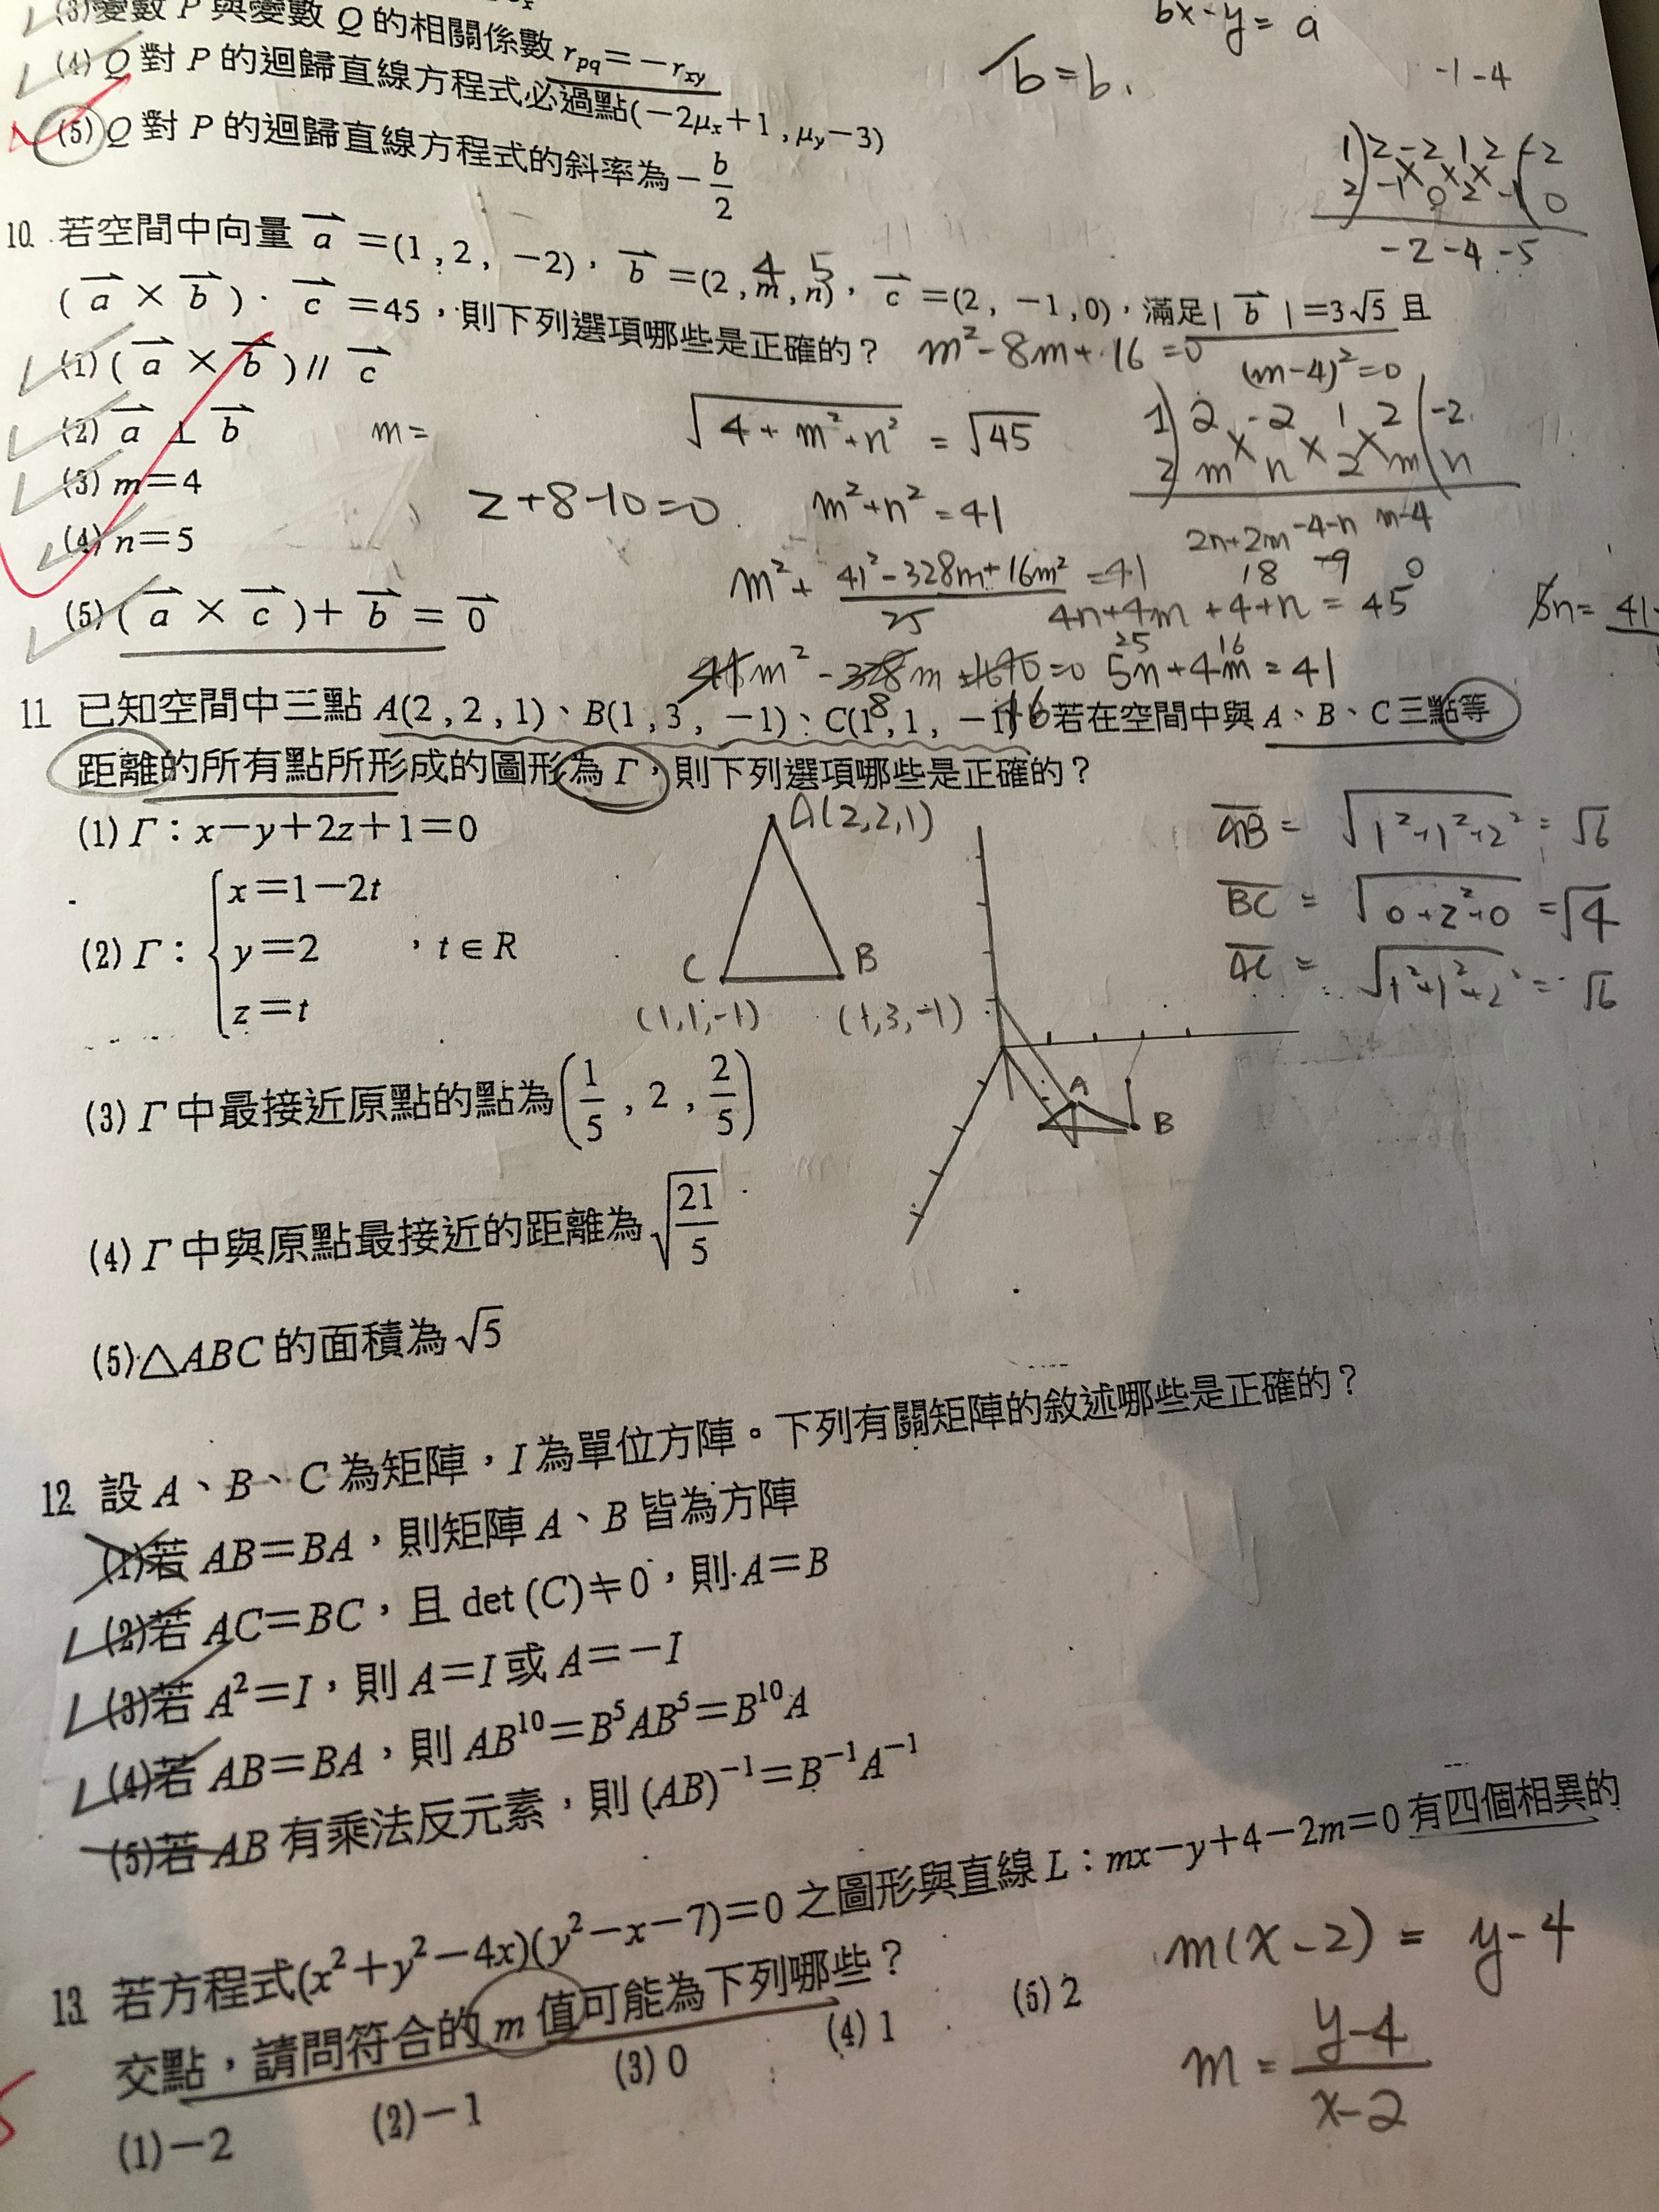 (3)變數 P 與變數 Q 的相關係數 r_pq=−r_xy
(4) Q 對 P 的迴歸直線方程式必過點(−2μx+1 , μy−3)
(5) Q 對 P 的迴歸直線方程式的斜率為−b/2
bx-y= a
b=b,
-1-4
1)2 -2 1 2(-2
2)-1 0 2 -1(0
-2 -4 -5
10. 若空間中向量 a =(1 , 2 , −2)，b =(2 , m , n)，c =(2 , −1 , 0)，滿足| b |=3√5 且
4 5
( a × b )· c =45，則下列選項哪些是正確的？
m²-8m+16=0
(m-4)²=0
(1) ( a × b )// c
(2) a ⊥ b
m=
√4+m²+n² = √45
1)2 -2 1 2(-2
2)m n 2 m(n
(3) m=4
2+8-10=0
m²+n²=41
2n+2m -4-n m-4
(4) n=5
m²+ 41²-328m+16m²/25 =41
18 -9 0
4n+4m+4+n=45
5n= 41-
(5) ( a × c )+ b = 0
m²-328m =0
25 16
5n+4m=41
11. 已知空間中三點 A(2 , 2 , 1)、B(1 , 3 , −1)、C(1 , 1 , −1)，若在空間中與 A、B、C 三點等
距離的所有點所形成的圖形為 Γ，則下列選項哪些是正確的？
(1) Γ：x−y+2z+1=0
A(2,2,1)
AB = √1²+1²+2² = √6
(2) Γ：{x=1−2t
y=2
z=t
，t∈R
BC = √0+2²+0 =√4
AC = √1²+1²+2² = √6
C B
(1,1,-1) (1,3,-1)
A B
(3) Γ 中最接近原點的點為(1/5 , 2 , 2/5)
(4) Γ 中與原點最接近的距離為√(21/5)
(5) △ABC 的面積為√5
12. 設 A、B、C 為矩陣，I 為單位方陣。下列有關矩陣的敘述哪些是正確的？
(1)若 AB=BA，則矩陣 A、B 皆為方陣
(2)若 AC=BC，且 det (C)≠0，則 A=B
(3)若 A²=I，則 A=I 或 A=−I
(4)若 AB=BA，則 AB¹⁰=B⁵AB⁵=B¹⁰A
(5)若 AB 有乘法反元素，則 (AB)⁻¹=B⁻¹A⁻¹
13. 若方程式(x²+y²−4x)(y²−x−7)=0 之圖形與直線 L：mx−y+4−2m=0 有四個相異的
交點，請問符合的 m 值可能為下列哪些？
(1)−2 (2)−1 (3) 0 (4) 1 (5) 2
m(x-2) = y-4
m = y-4/x-2